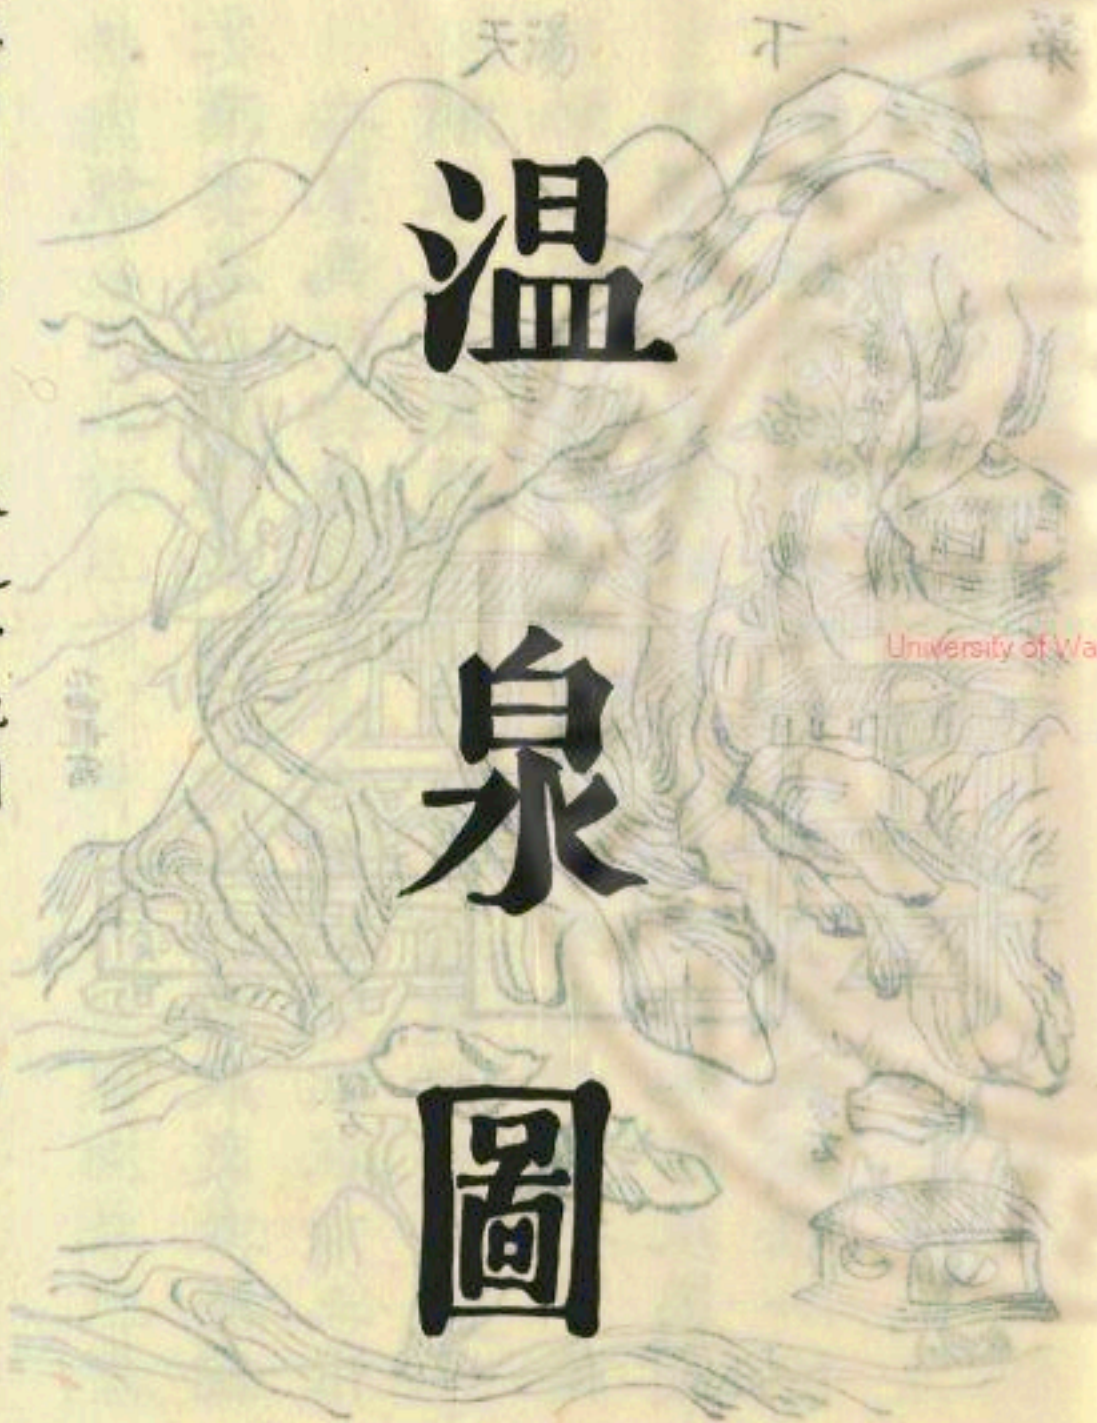 温
泉
圖
University of Wa